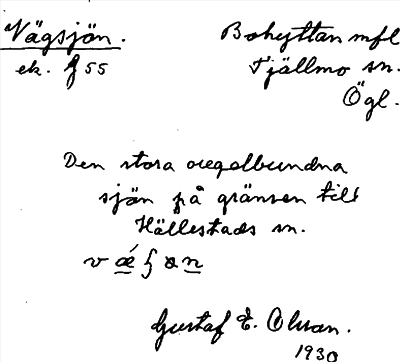 Vägsjön.
Bohyttan mfl
ek. f 55
Tjällmo sn.
Ögl.
Den stora oregelbundna
sjön på gränsen till
Hällestads sn.
Gustaf E. Olsson.
1930